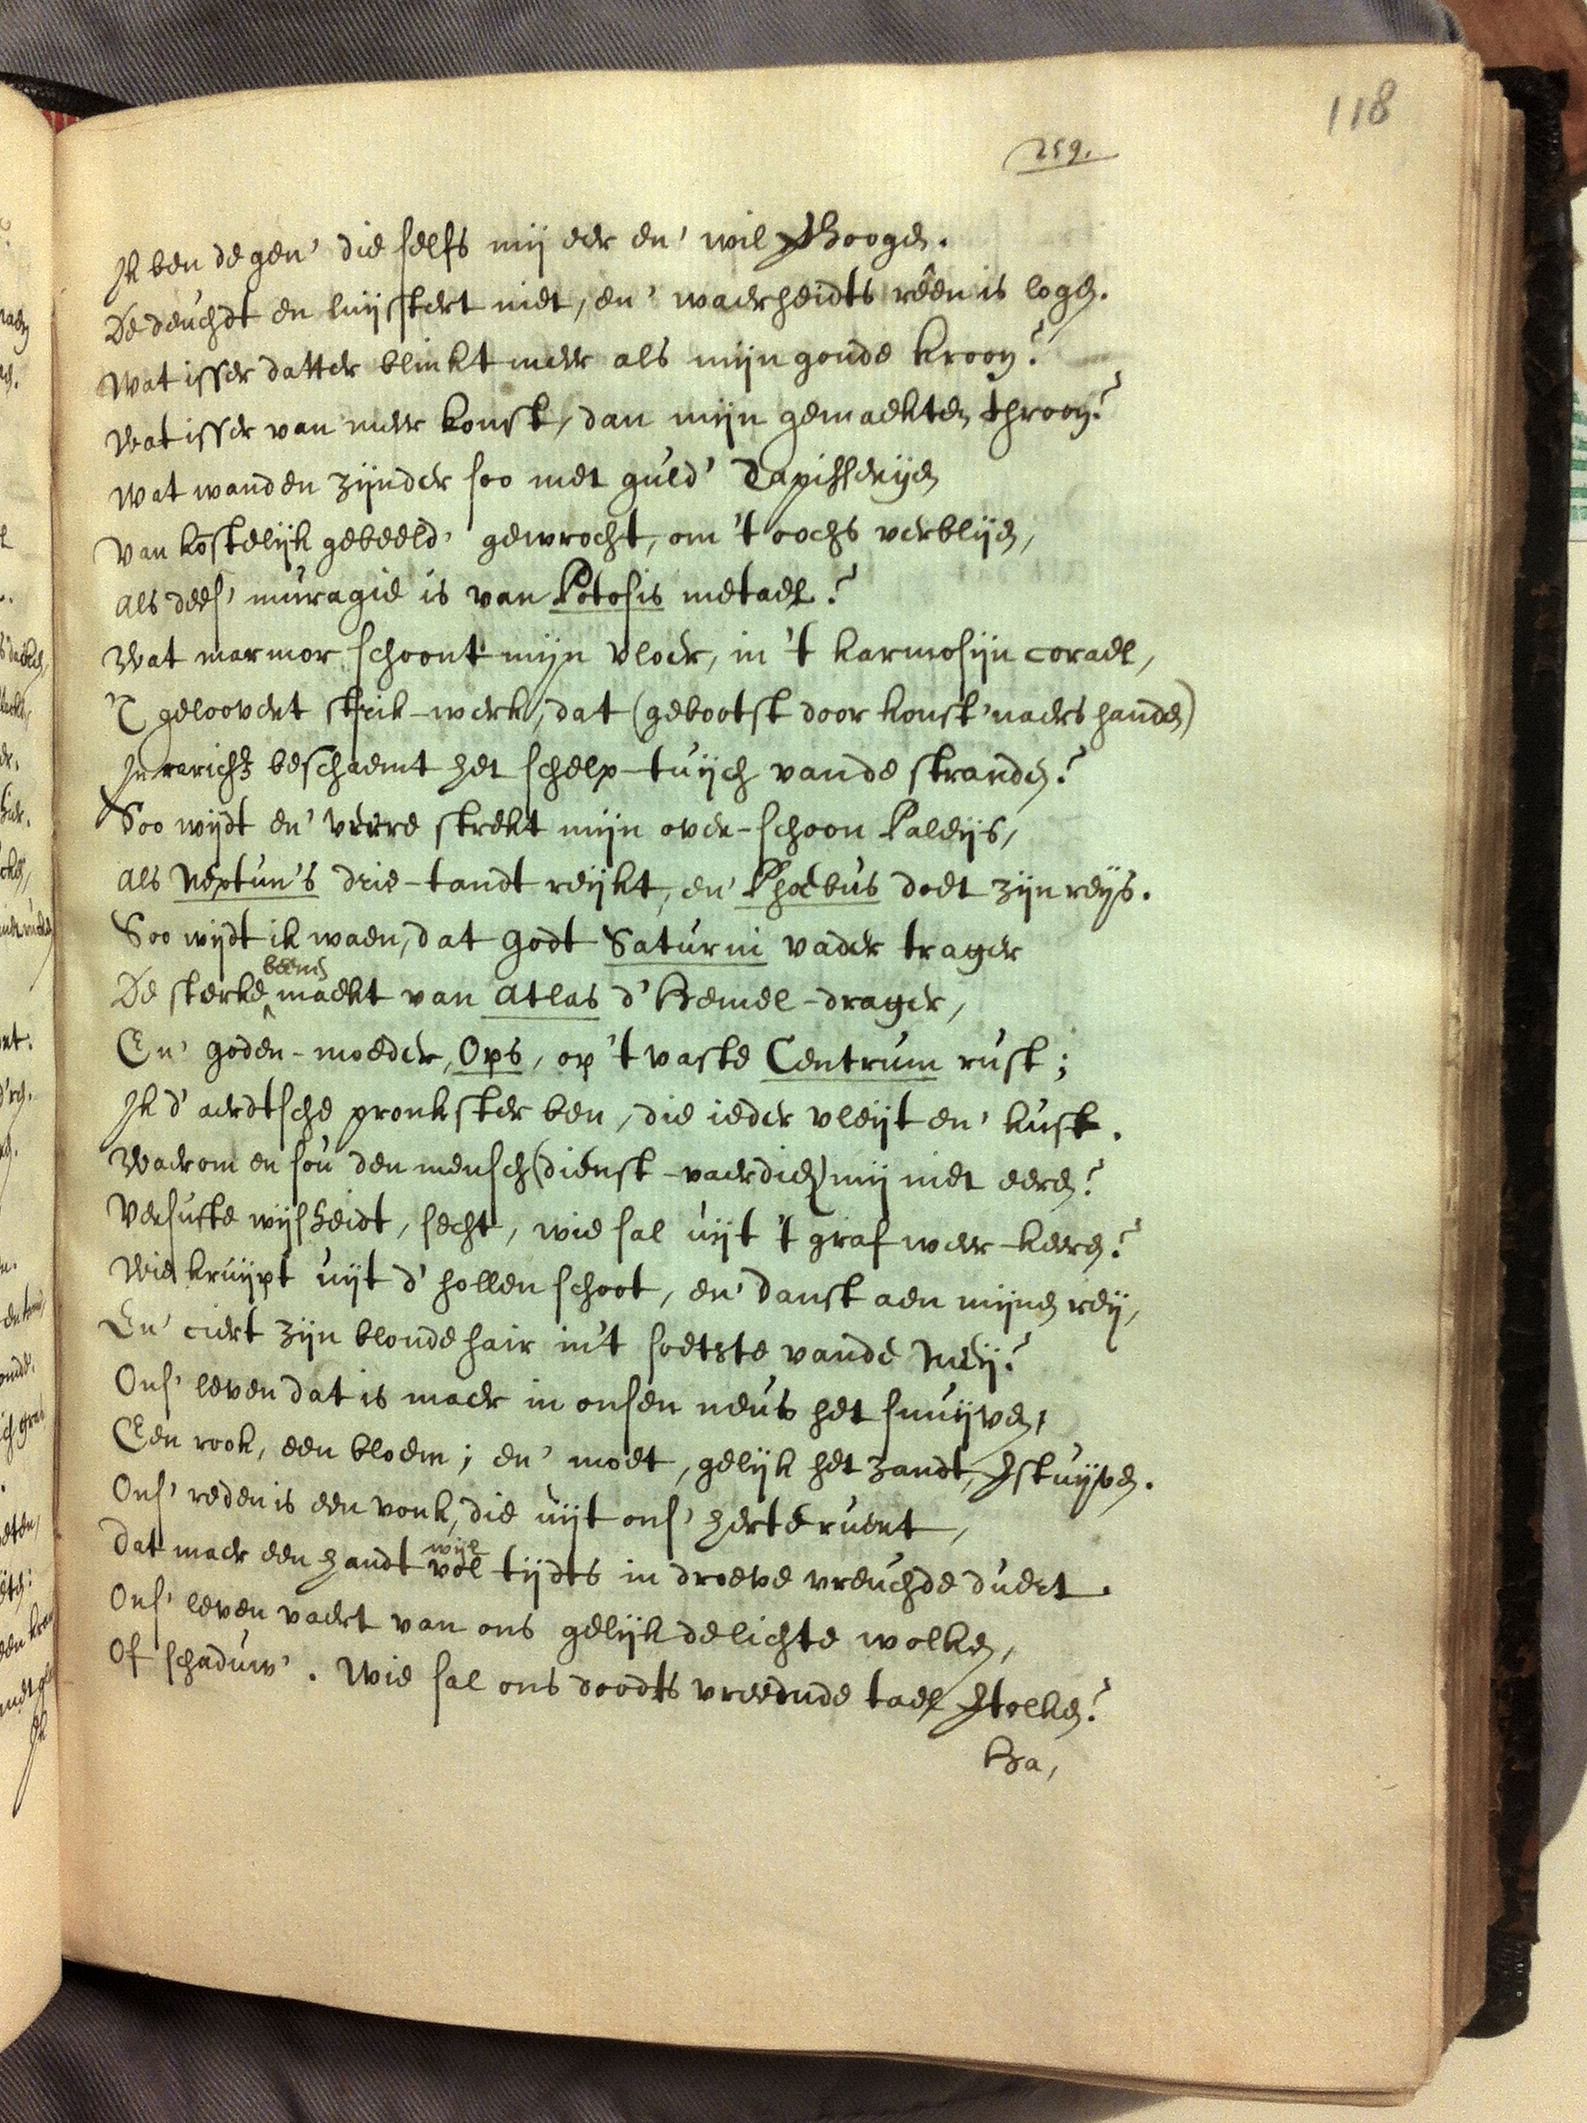 118
259.
Ik ben de gen' die selfs mij eer en' wil verhoogen.
De deuchdt en luijstert niet, en' waerheidts rêen is logen.
Wat isser datter blinkt meer als mijn goude kroon?
Wat isser van meer konst, dan mijn gemaekten throon?
Wat wanden zijnder soo met guld' Tapisserijen
Van kostelijk gebeeld' gewrocht, om 't oochs verblijen,
Als dees' muragie is van Potosis metael?
Wat marmor schoont mijn vloer, in 't karmosijn corael,
'T geloovert strik-werk, dat (gebootst door konst'naers handen)
In raricht beschaemt het schelp-tuijch vande stranden?
Soo wijdt en' verre strekt mijn over-schoon Paleijs,
Als Neptun's drie-tandt reijkt, en' Phoebus doet zijn reijs.
Soo wijdt ik waen, dat Godt Saturni vader trager
De sterke beenen maekt van Atlas d' Hemel-drager,
En' goden-moeder, Ops, op 't vaste Centrum rust;
Ik d' aerdtsche pronkster ben, die ieder vleijt en' kust.
Waerom en sou den mensch (dienst-vaerdich) mij niet eeren?
Versufte wijsheidt, secht, wie sal uijt 't graf weer-keeren?
Wie kruijpt uijt d' hollen schoot, en' danst aen mijnen reij,
En' ciert zijn blonde hair in't soetste vande Meij?
Ons' leven dat is maer in onsen neus het snuijven,
Een rook, een bloem; en' moet, gelijk het zandt, verstuijven.
Ons' reden is een vonk, die uijt ons' herte ruert,
Dat maer een handt vol wijl tijdts in droeve vreuchde duert.
Ons' leven vaert van ons gelijk de lichte wolken,
Of schaduw'. Wie sal ons doodts vreemde tael vertolken?
Ha,